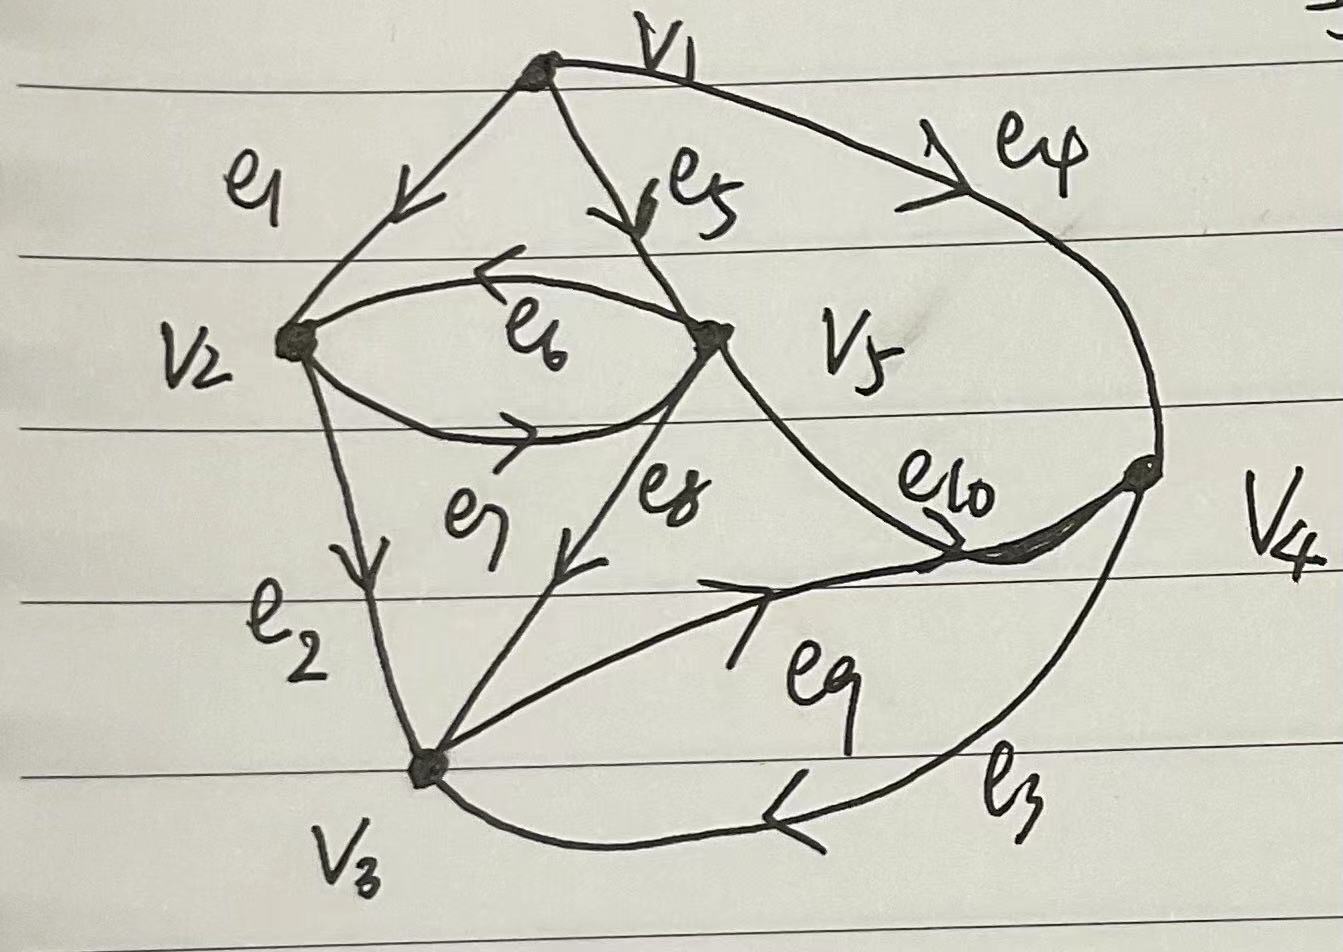 V1
e4
e1
e5
V2
e6
V5
e7
e8
e10
V4
e2
e9
e3
V3